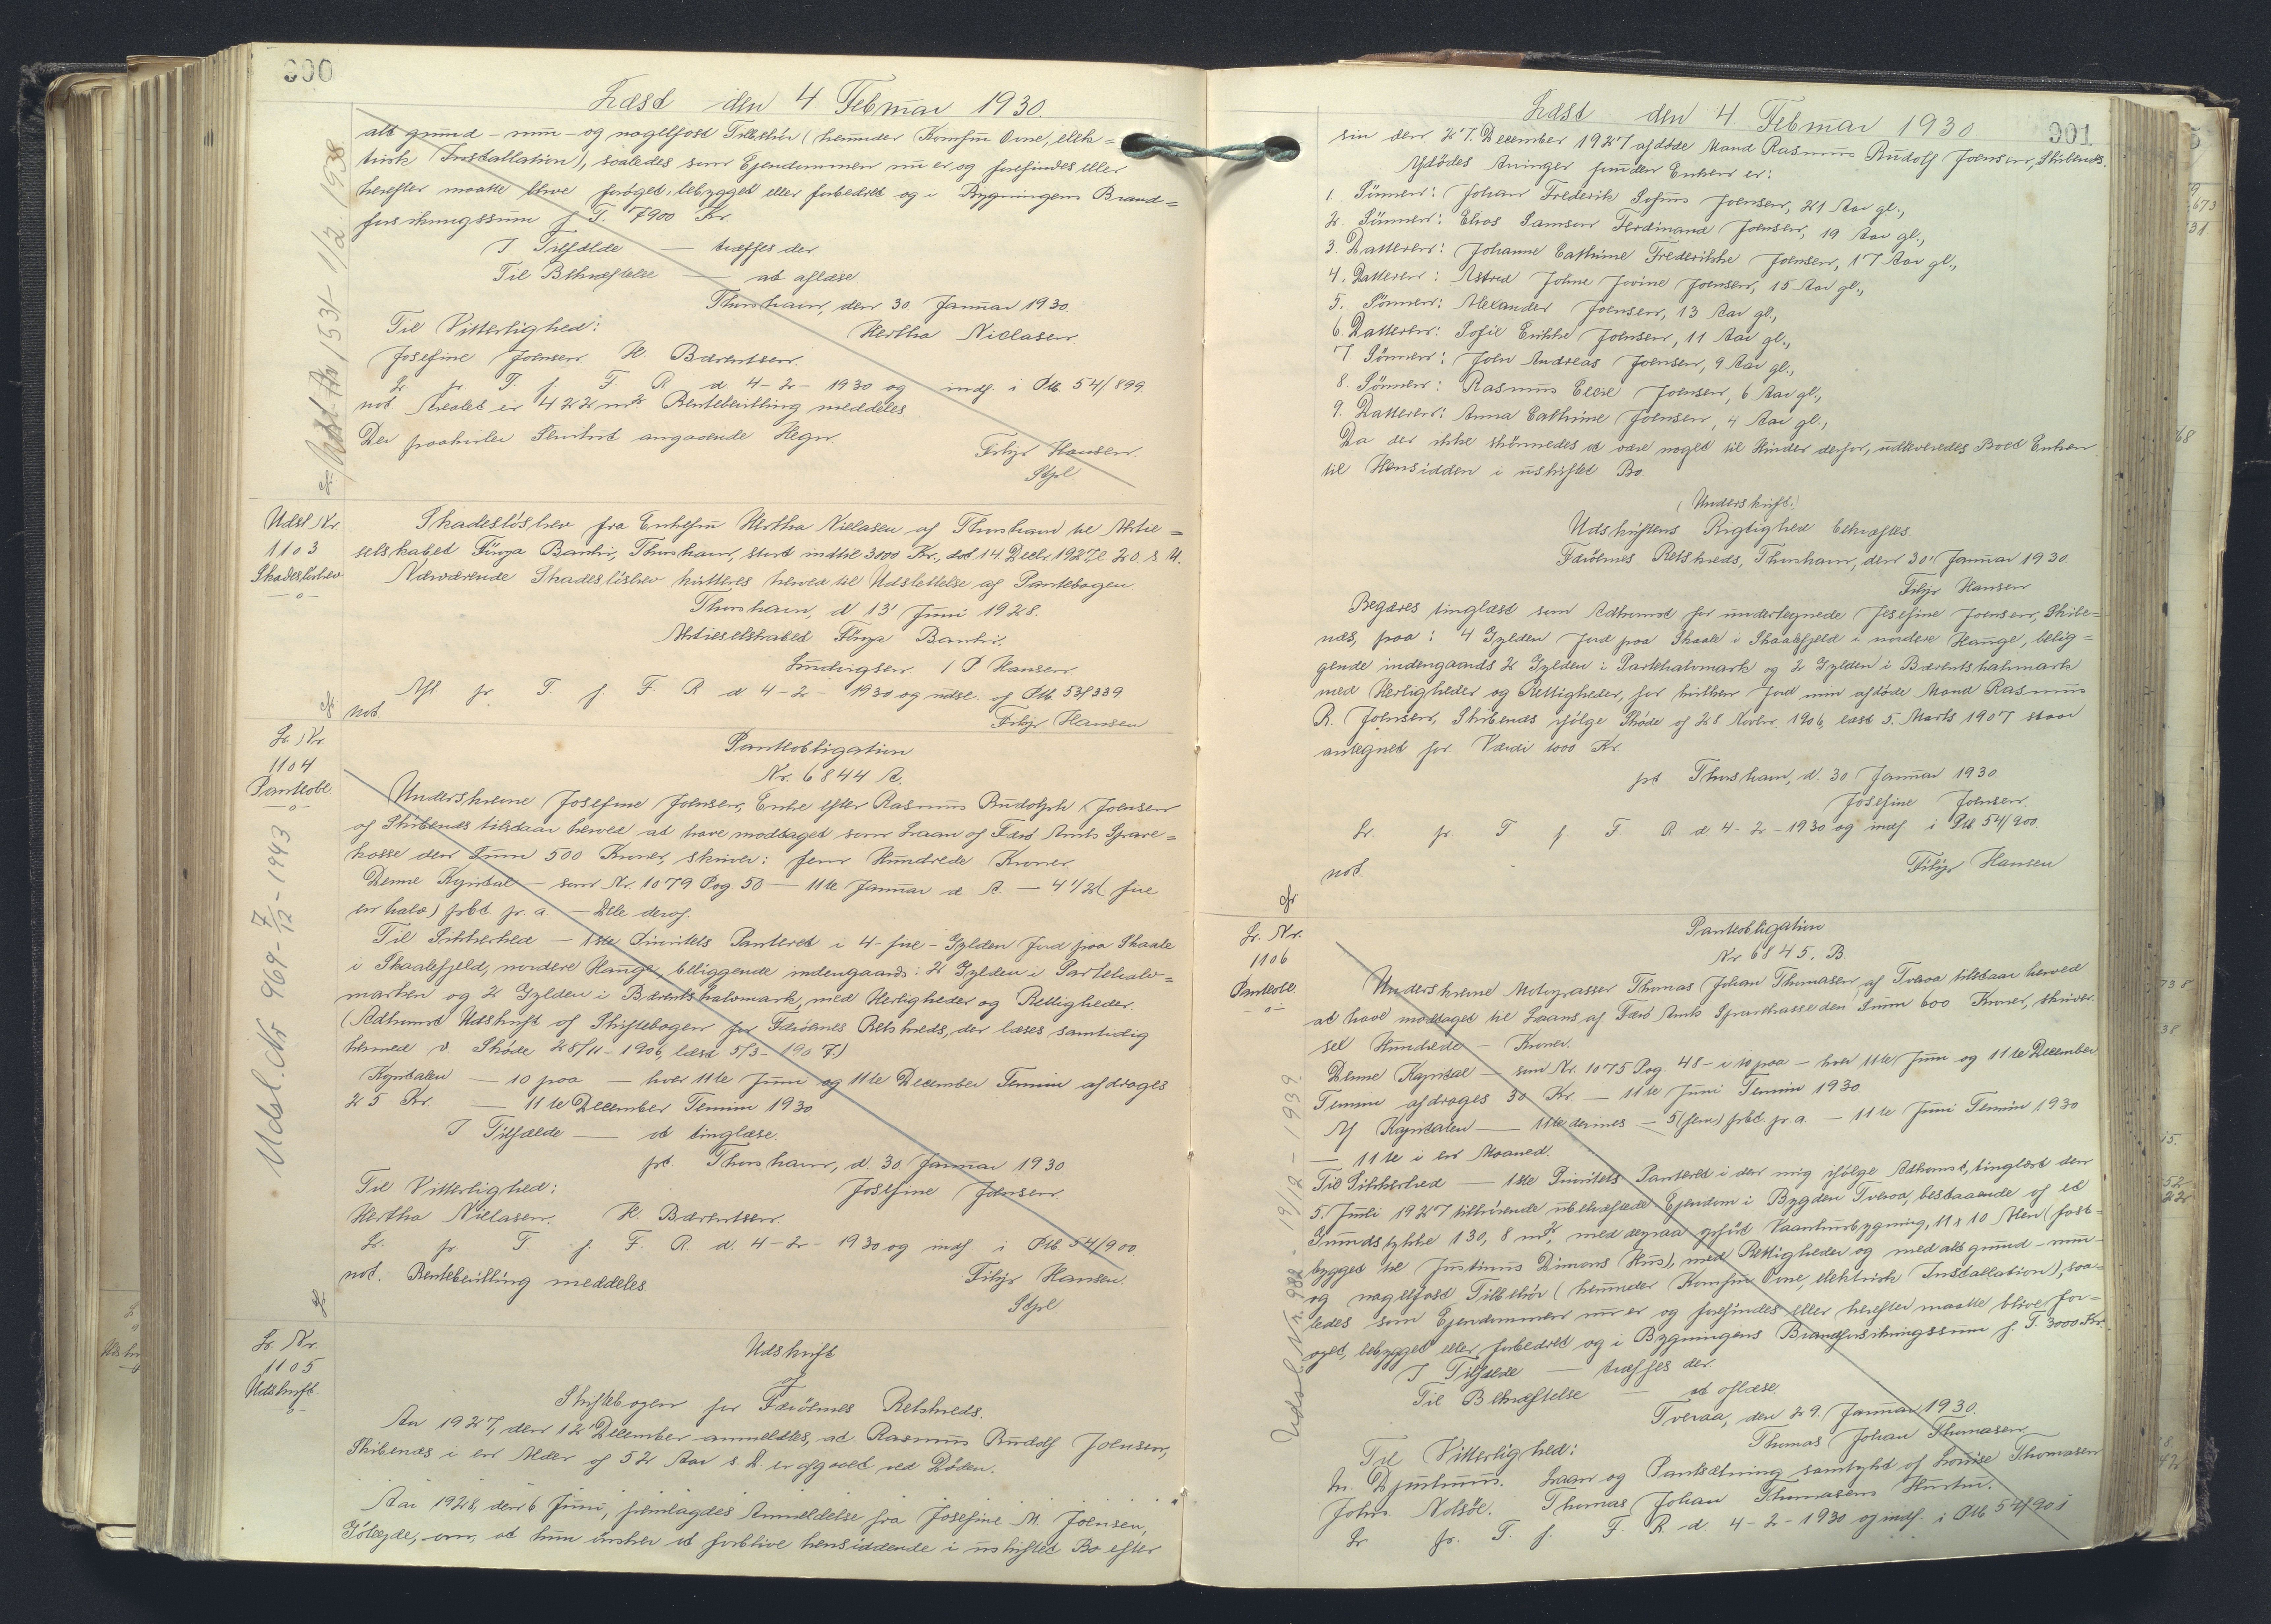 900
Læst den 4 Februar 1930.
alt grund- mur- og nagelfast Tilbehör (herunder Komfur Ovne, elek=
trisk Installation), saaledes som Ejendommen nu er og forefindes eller
herefter maatte blive forøget, bebygget eller forbedret og i Bygningens Brand=
forsikringssum p. T. 7900 Kr.
I Tilfælde — træffes der.
Til Bekræftelse — at aflæse
Thorshavn, den 30 Januar 1930.
Til Vitterlighed: Hertha Niclasen
Josefine Joensen H. Bærentsen.
Lr. pr. T. f. F. R. d 4-2-1930 og indf. i Ptb. 54/899.
not Arealet er 422 m² Rentebevilling meddeles
Der paahviler Servitut angaaende Hegn.
Filip Hansen.
Stpl
Udsl. Nr. 1531 1/2 1938
Udsl Nr.
1103
Skadeslösbrev
Skadeslösbrev fra Enkefru Hertha Niclasen af Thorshavn til Aktie=
selskabet Föroya Banki, Thorshavn, stort indtil 3000 Kr., dat 14 Decbr. 1927, l. 20. s. M.
Nærværende Skadeslösbrev kvitteres herved til Udslettelse af Pantebogen
Thorshavn, d 13' Juni 1928.
Aktieselskabet Föroya Banki.
Ludvigsen. / P Hansen
Afl pr. T. f. F. R d 4-2-1930 og udsl. af Ptb. 53/339.
not. Filip Hansen
Lr. Nr.
1104
Panteobl
Panteobligation
Nr. 6844 A.
Underskrevne Josefine Joensen, Enke efter Rasmus Rudolph Joensen
af Skibenæs tilstaar herved at have modtaget som Laan af Færö Amts Spare=
kasse den Sum 500 Kroner, skriver: fem Hundrede Kroner
Denne Kapital — som Nr. 1079 Pag. 50 — 11te Januar d. A. — 4 1/2 (fire
en halv) pCt. pr. a. — Dele deraf.
Til Sikkerhed — 1ste Prioritets Panteret i 4-fire-Gylden Jord paa Skaale
i Skaalefjeld, nordere Hauge, beliggende indengaards: 2 Gylden i Partehalv=
marken og 2 Gylden i Bærentshalvmark, med Herligheder og Rettigheder.
(Adkomst Udskrift af Skiftebogen for Færöernes Retskreds, der læses samtidig
hermed v. Skøde 28/11-1906, læst 5/3-1907.)
Kapitalen — 10 paa — hver 11te Juni og 11te December Termin afdrages
25 Kr. — 11te December Termin 1930
I Tilfælde — at tinglæse.
pt. Thorshavn, d. 30 Januar 1930
Til Vitterlighed: Josefine Joensen.
Hertha Niclasen. H. Bærentsen
Lr. pr. T f. F. R. d. 4-2-1930 og indf. i Ptb. 54/900
not. Rentebevilling meddeles Filip Hansen.
Stpl.
Udsl. Nr 969 - 7/12 - 1943
Lr. Nr.
1105
Udskrift.
Udskrift
af
Skiftebogen for Færöernes Retskreds.
Aar 1927, den 12' December anmeldtes, at Rasmus Rudolf Joensen,
Skibenæs i en Alder af 52 Aar s. D. er afgaaet ved Döden.
Aar 1928, den 6 Juni, fremlagdes Anmeldelse fra Josefine M. Joensen,
om, at hun önsker at forblive hensiddende i uskiftet Bo efter
Læst den 4 Februar 1930. 901
sin den 27. December 1927 afdöde Mand Rasmus Rudolf Joensen, Skibenæs.
Afdödes Arvinger foruden Enken er:
1. Sönnen: Johan Frederik Sofus Joensen, 21 Aar gl.,
2. Sönnen: Elias Samson Ferdinand Joensen, 19 Aar gl.,
3. Datteren: Johanne Cathrine Frederikke Joensen, 17 Aar gl.,
4. Datteren: Astrid Joline Jovine Joensen, 15 Aar gl.,
5. Sönnen: Alexander Joensen, 13 Aar gl.,
6. Datteren: Sofie Enikke Joensen, 11 Aar gl.,
7 Sönnen: John Andreas Joensen, 9 Aar gl.,
8. Sönnen: Rasmus Joensen, 6 Aar gl.,
9. Datteren: Anna Cathrine Joensen, 4 Aar gl.,
Da der ikke skönnedes at være noget til Hinder derfor, udleveredes Boet Enken
til Hensidden i uskiftet Bo.
(Underskrift.)
Udskriftens Rigtighed bekræftes
Færöernes Retskreds, Thorshavn, den 30' Januar 1930.
Filip Hansen
Begæres tinglæst som Adkomst for undertegnede Josefine Joensen, Skibe=
næs, paa: 4 Gylden Jord paa Skaale i Skaalefjeld i nordere Hauge, belig=
gende indengaards 2 Gylden i Partehalvmark og 2 Gylden i Bærentshalvmark
med Herligheder og Rettigheder, for hvilken Jord min afdöde Mand Rasmus
R. Joensen, Skibenæs ifölge Sköde af 28 Novbr. 1906, læst 5. Marts 1907 staar
antegnet for. Værdi 1000 Kr.
pt. Thorshavn, d. 30 Januar 1930.
Josefine Joensen.
Lr. pr. T f. F R d 4-2-1930 og indf. i Ptb 54/900.
not. Filip Hansen
Lr. Nr.
1106
Panteobl.
Panteobligation
Nr. 6845. B.
Underskrevne Motorpasser Thomas Johan Thomasen, af Tveraa tilstaar herved
at have modtaget til Laans af Færö Amts Sparekasse den Sum 600 Kroner, skriver
sex Hundrede — Kroner.
Denne Kapital — som Nr. 1075 Pag. 48 - i 10 paa — hver 11te Juni og 11te December
Termin afdrages 30 Kr. — 11te Juni Termin 1930
Af Kapitalen — 11te dennes — 5 (fem) pCt. pr. a. — 11te Juni Termin 1930
— 11te i en Maaned.
Til Sikkerhed — 1ste Prioritets Panteret i den mig ifölge Adkomst, tinglæst den
5. Juli 1927 tilhörende ubehæftede Ejendom i Bygden Tveraa, bestaaende af et
Grundstykke 130,8 m², med derpaa opført Vaaningshusbygning, 11 x 10 Alen (fast-
bygget til Justinus Dimons Hus), med Rettigheder og med alt grund- mur-
og nagelfast Tilbehör (herunder Komfur Ovne, elektrisk Installation), saa=
ledes som Ejendommen nu er og forefindes eller herefter maatte blive for=
øget, bebygget eller forbedret og i Bygningens Brandforsikringssum p. T. 3000 Kr.
I Tilfælde — træffes der.
Til Bekræftelse — at aflæse.
Tveraa, den 29. Januar 1930.
Til Vitterlighed: Thomas Johan Thomasen
M. Djurhuus. Laan og Pantsætning samtykt af Louise Thomasen
Johs. Nolsöe. Thomas Johan Thomasens Hustru.
Lr pr. T. f. F. R d. 4-2-1930 og indf. i Ptb 54/901
Udsl. Nr. 982 - 19/12 - 1939